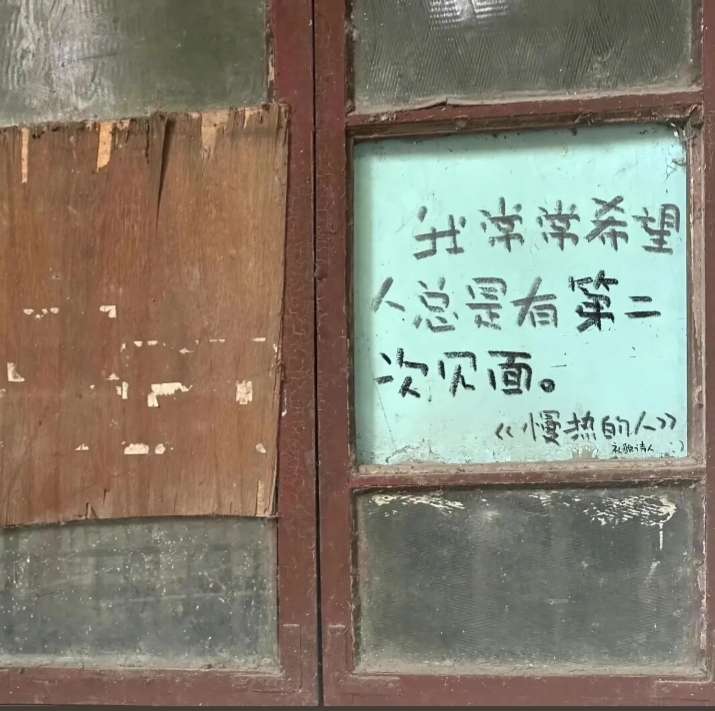 我常常希望
人总是有第二
次见面。
《慢热的人》
诗人